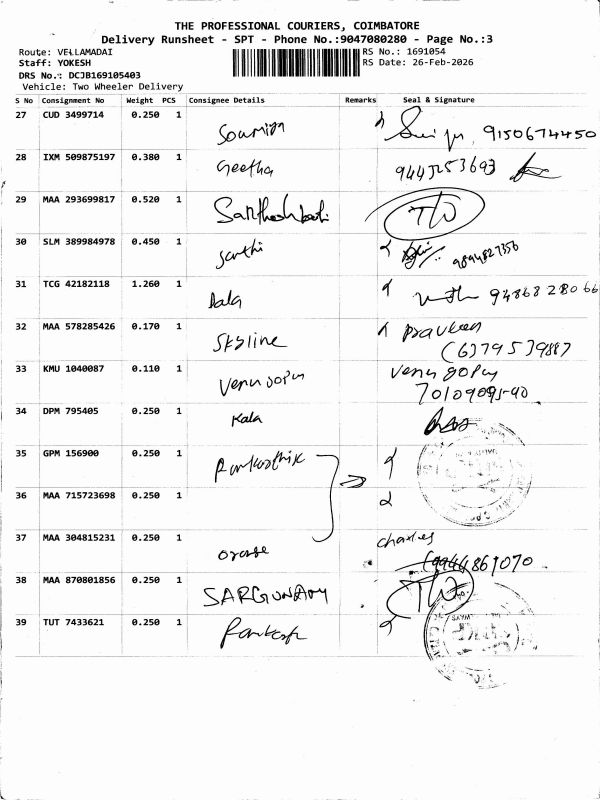 THE PROFESSIONAL COURIERS, COIMBATORE
Delivery Runsheet - SPT - Phone No.:9047080280 - Page No.:3
Route: VELLAMADAI RS No.: 1691054
Staff: YOKESH RS Date: 26-Feb-2026
DRS No.: DCJB169105403
Vehicle: Two Wheeler Delivery
S No Consignment No Weight PCS Consignee Details Remarks Seal & Signature
27 CUD 3499714 0.250 1 Soumiya 9150674450
28 IXM 509875197 0.380 1 Geetha 9445253693
29 MAA 293699817 0.520 1 TW
30 SLM 389984978 0.450 1 Santhi 9894827356
31 TCG 42182118 1.260 1 Bala 94868 28066
32 MAA 578285426 0.170 1 Skyline Praveen
(6379539887
33 KMU 1040087 0.110 1 Venu gopu Venu gopu
34 DPM 795405 0.250 1 Kala
35 GPM 156900 0.250 1
36 MAA 715723698 0.250 1
37 MAA 304815231 0.250 1 charles
38 MAA 870801856 0.250 1 SARGUNAM TW
39 TUT 7433621 0.250 1